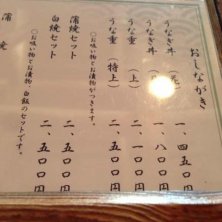 おしながき
うなぎ丼 一、四五〇円
うなぎ丼（上） 一、八〇〇円
うな重（上） 二、一〇〇円
うな重（特上） 二、五〇〇円
○お吸い物とお漬物がつきます。
蒲焼セット 二、五〇〇円
白焼セット 二、五〇〇円
○お吸い物とお漬物・白飯のセットです。
蒲焼